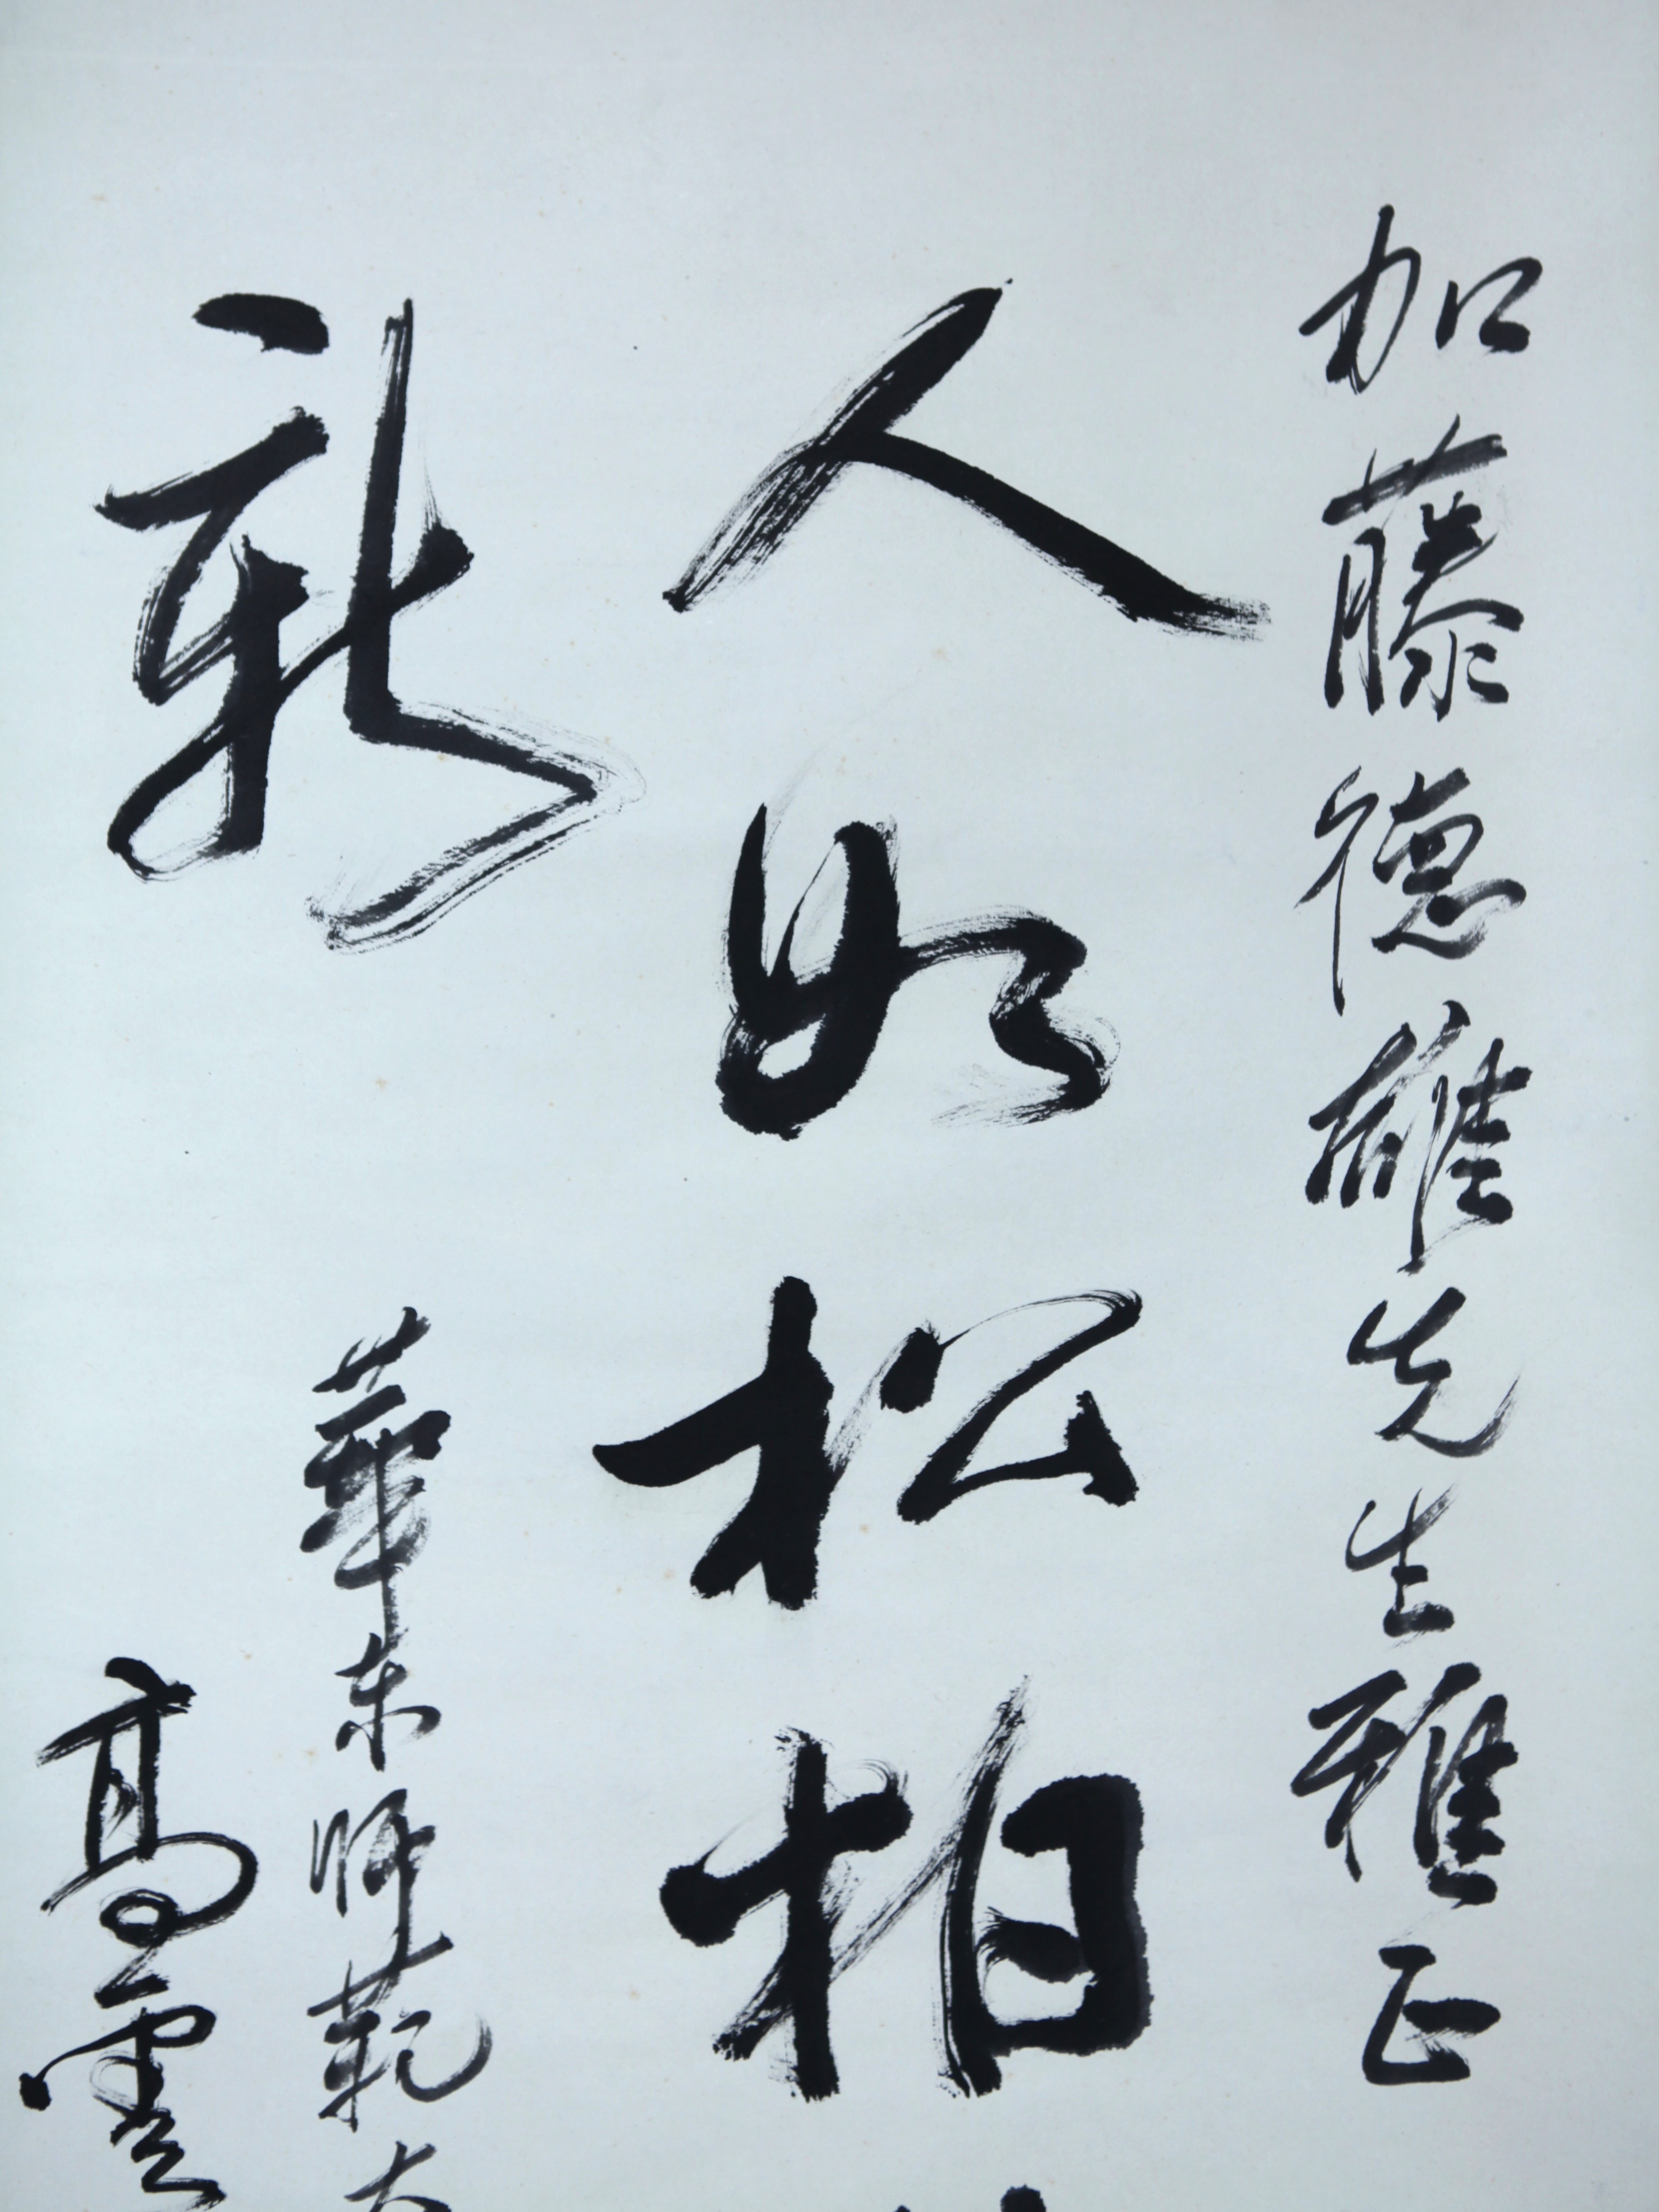 加藤德雄先生雅正
人如松柏
新
華东师范大
高雲